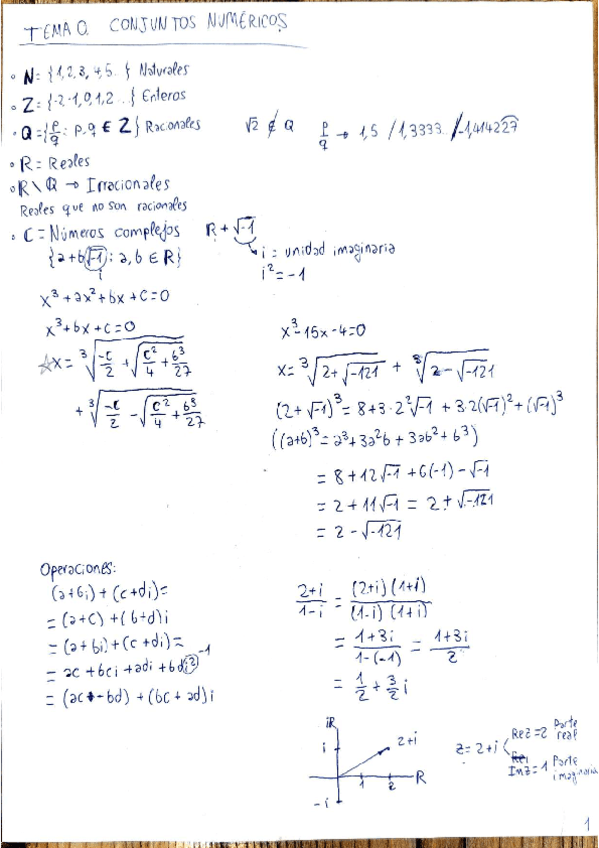 TEMA 0. CONJUNTOS NUMÉRICOS
• N = {1,2,3,4,5..} Naturales
• Z = {-2-1,0,1,2..} Enteros
• Q = {p/q : p,q ∈ Z} Racionales √2 ∉ Q p/q → 1,5 / 1,3333.. / -1,414227
• R = Reales
• R \ Q → Irracionales
Reales que no son racionales
• C = Números complejos R + √-1
{a+b√-1 : a,b ∈ R} i = unidad imaginaria
i i² = -1
x³ + ax² + bx + c = 0
x³ + bx + c = 0
☆x = ³√(-c/2 + √(c²/4 + b³/27))
+ ³√(-c/2 - √(c²/4 + b³/27))
x³ - 15x - 4 = 0
x = ³√(2 + √-121) + ³√(2 - √-121)
(2 + √-1)³ = 8 + 3·2²√-1 + 3·2(√-1)² + (√-1)³
((a+b)³ = a³ + 3a²b + 3ab² + b³)
= 8 + 12√-1 + 6(-1) - √-1
= 2 + 11√-1 = 2 + √-121
= 2 - √-121
Operaciones:
(a+bi) + (c+di) =
= (a+c) + (b+d)i
= (a+bi) + (c+di) =
= ac + bci + adi + bdi² -1
= (ac - bd) + (bc + ad)i
2+i/1-i = (2+i)(1+i)/(1-i)(1+i)
= 1+3i/1-(-1) = 1+3i/2
= 1/2 + 3/2 i
iR
i 2+i
1 2 R
-i
z = 2+i Rez = 2 Parte real
Imz = 1 Parte imaginaria
1